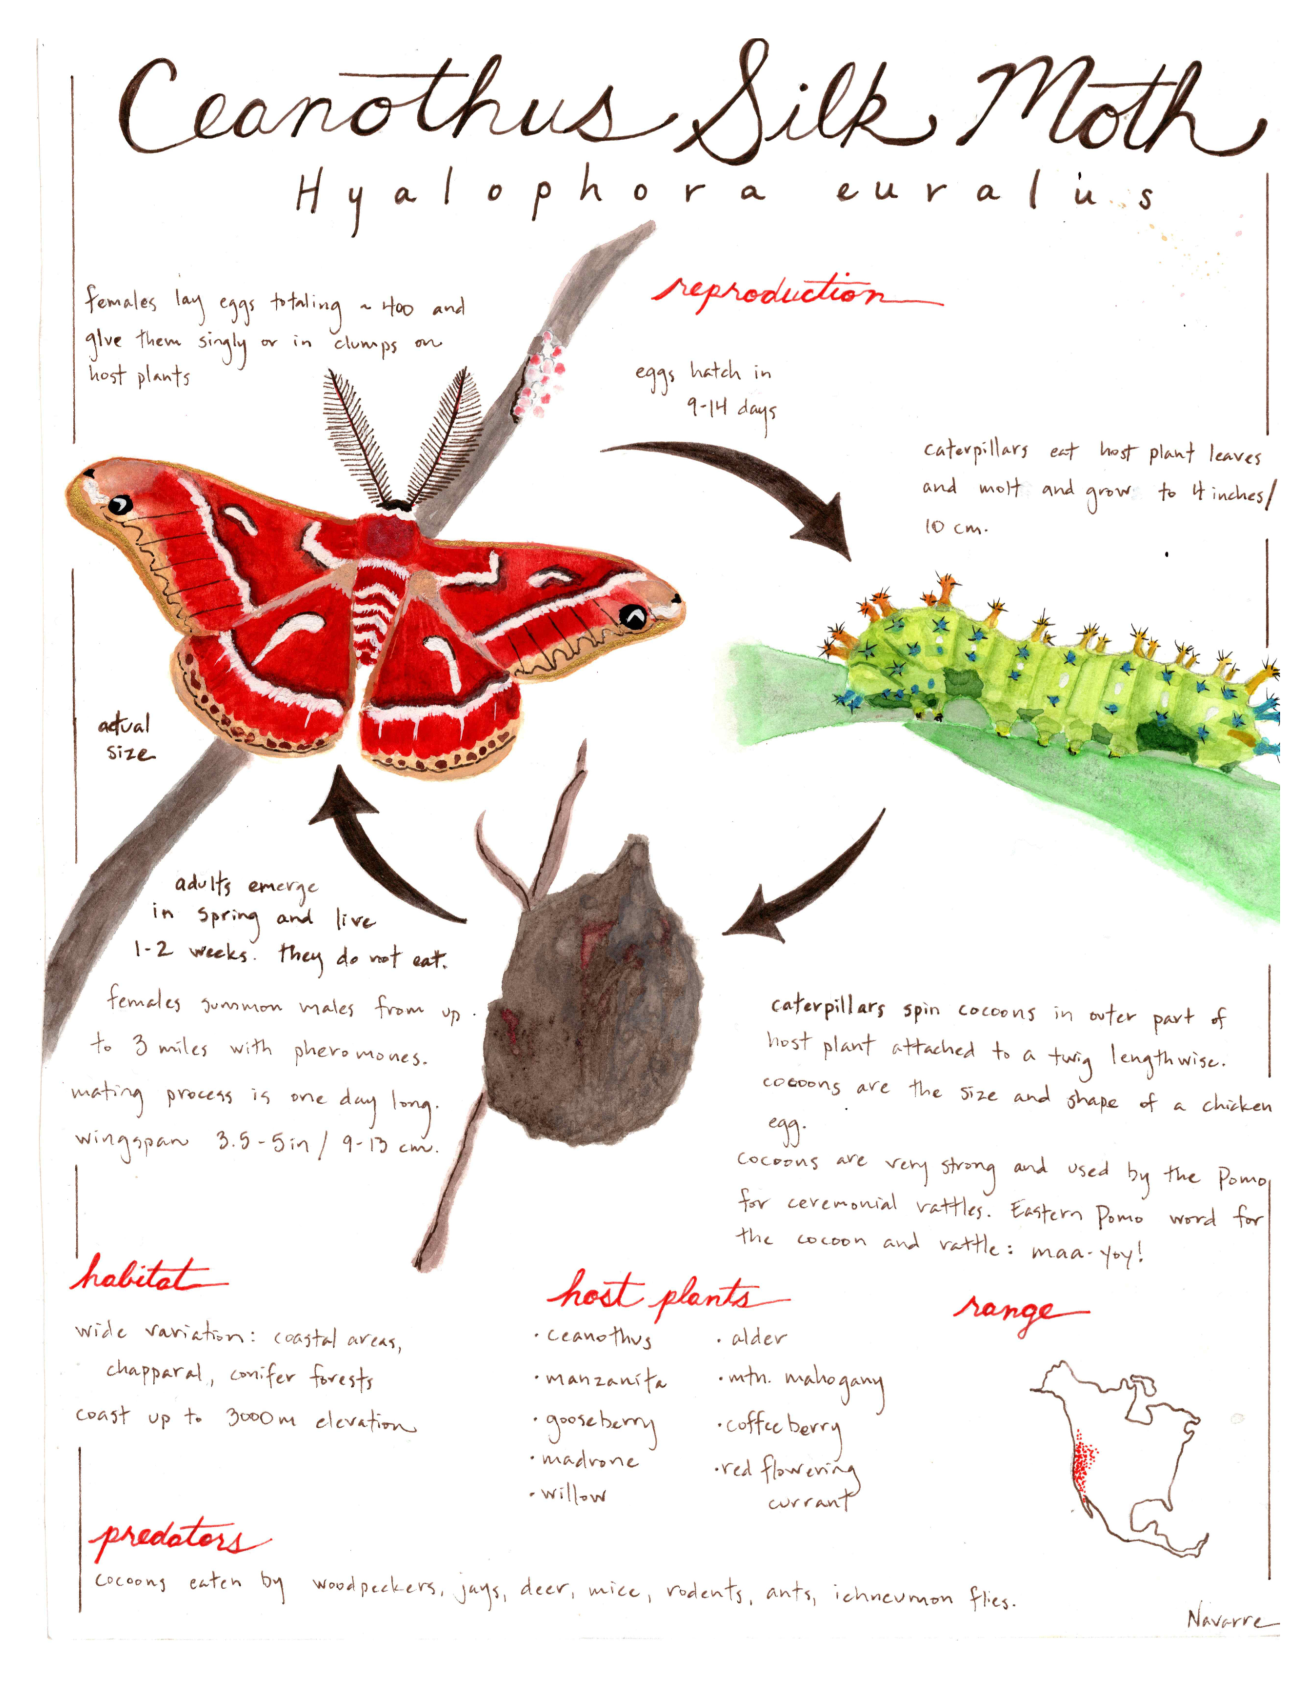 Ceanothus Silk Moth
Hyalophora euralus
females lay eggs totaling ~ 400 and
glue them singly or in clumps on
host plants
reproduction
eggs hatch in
9-14 days
caterpillars eat host plant leaves
and molt and grow to 4 inches/
10 cm.
actual
size
adults emerge
in spring and live
1-2 weeks. they do not eat.
females summon males from up
to 3 miles with pheromones.
mating process is one day long.
wingspan 3.5-5in / 9-13 cm.
caterpillars spin cocoons in outer part of
host plant attached to a twig lengthwise.
cocoons are the size and shape of a chicken
egg.
cocoons are very strong and used by the Pomo
for ceremonial rattles. Eastern Pomo word for
the cocoon and rattle: maa-yoy!
habitat
wide variation: coastal areas,
chapparal, conifer forests
coast up to 3000m elevation
host plants
· ceanothus
· manzanita
· gooseberry
· madrone
· willow
· alder
· mtn. mahogany
· coffeeberry
· red flowering
currant
range
predators
cocoons eaten by woodpeckers, jays, deer, mice, rodents, ants, ichneumon flies.
Navarre